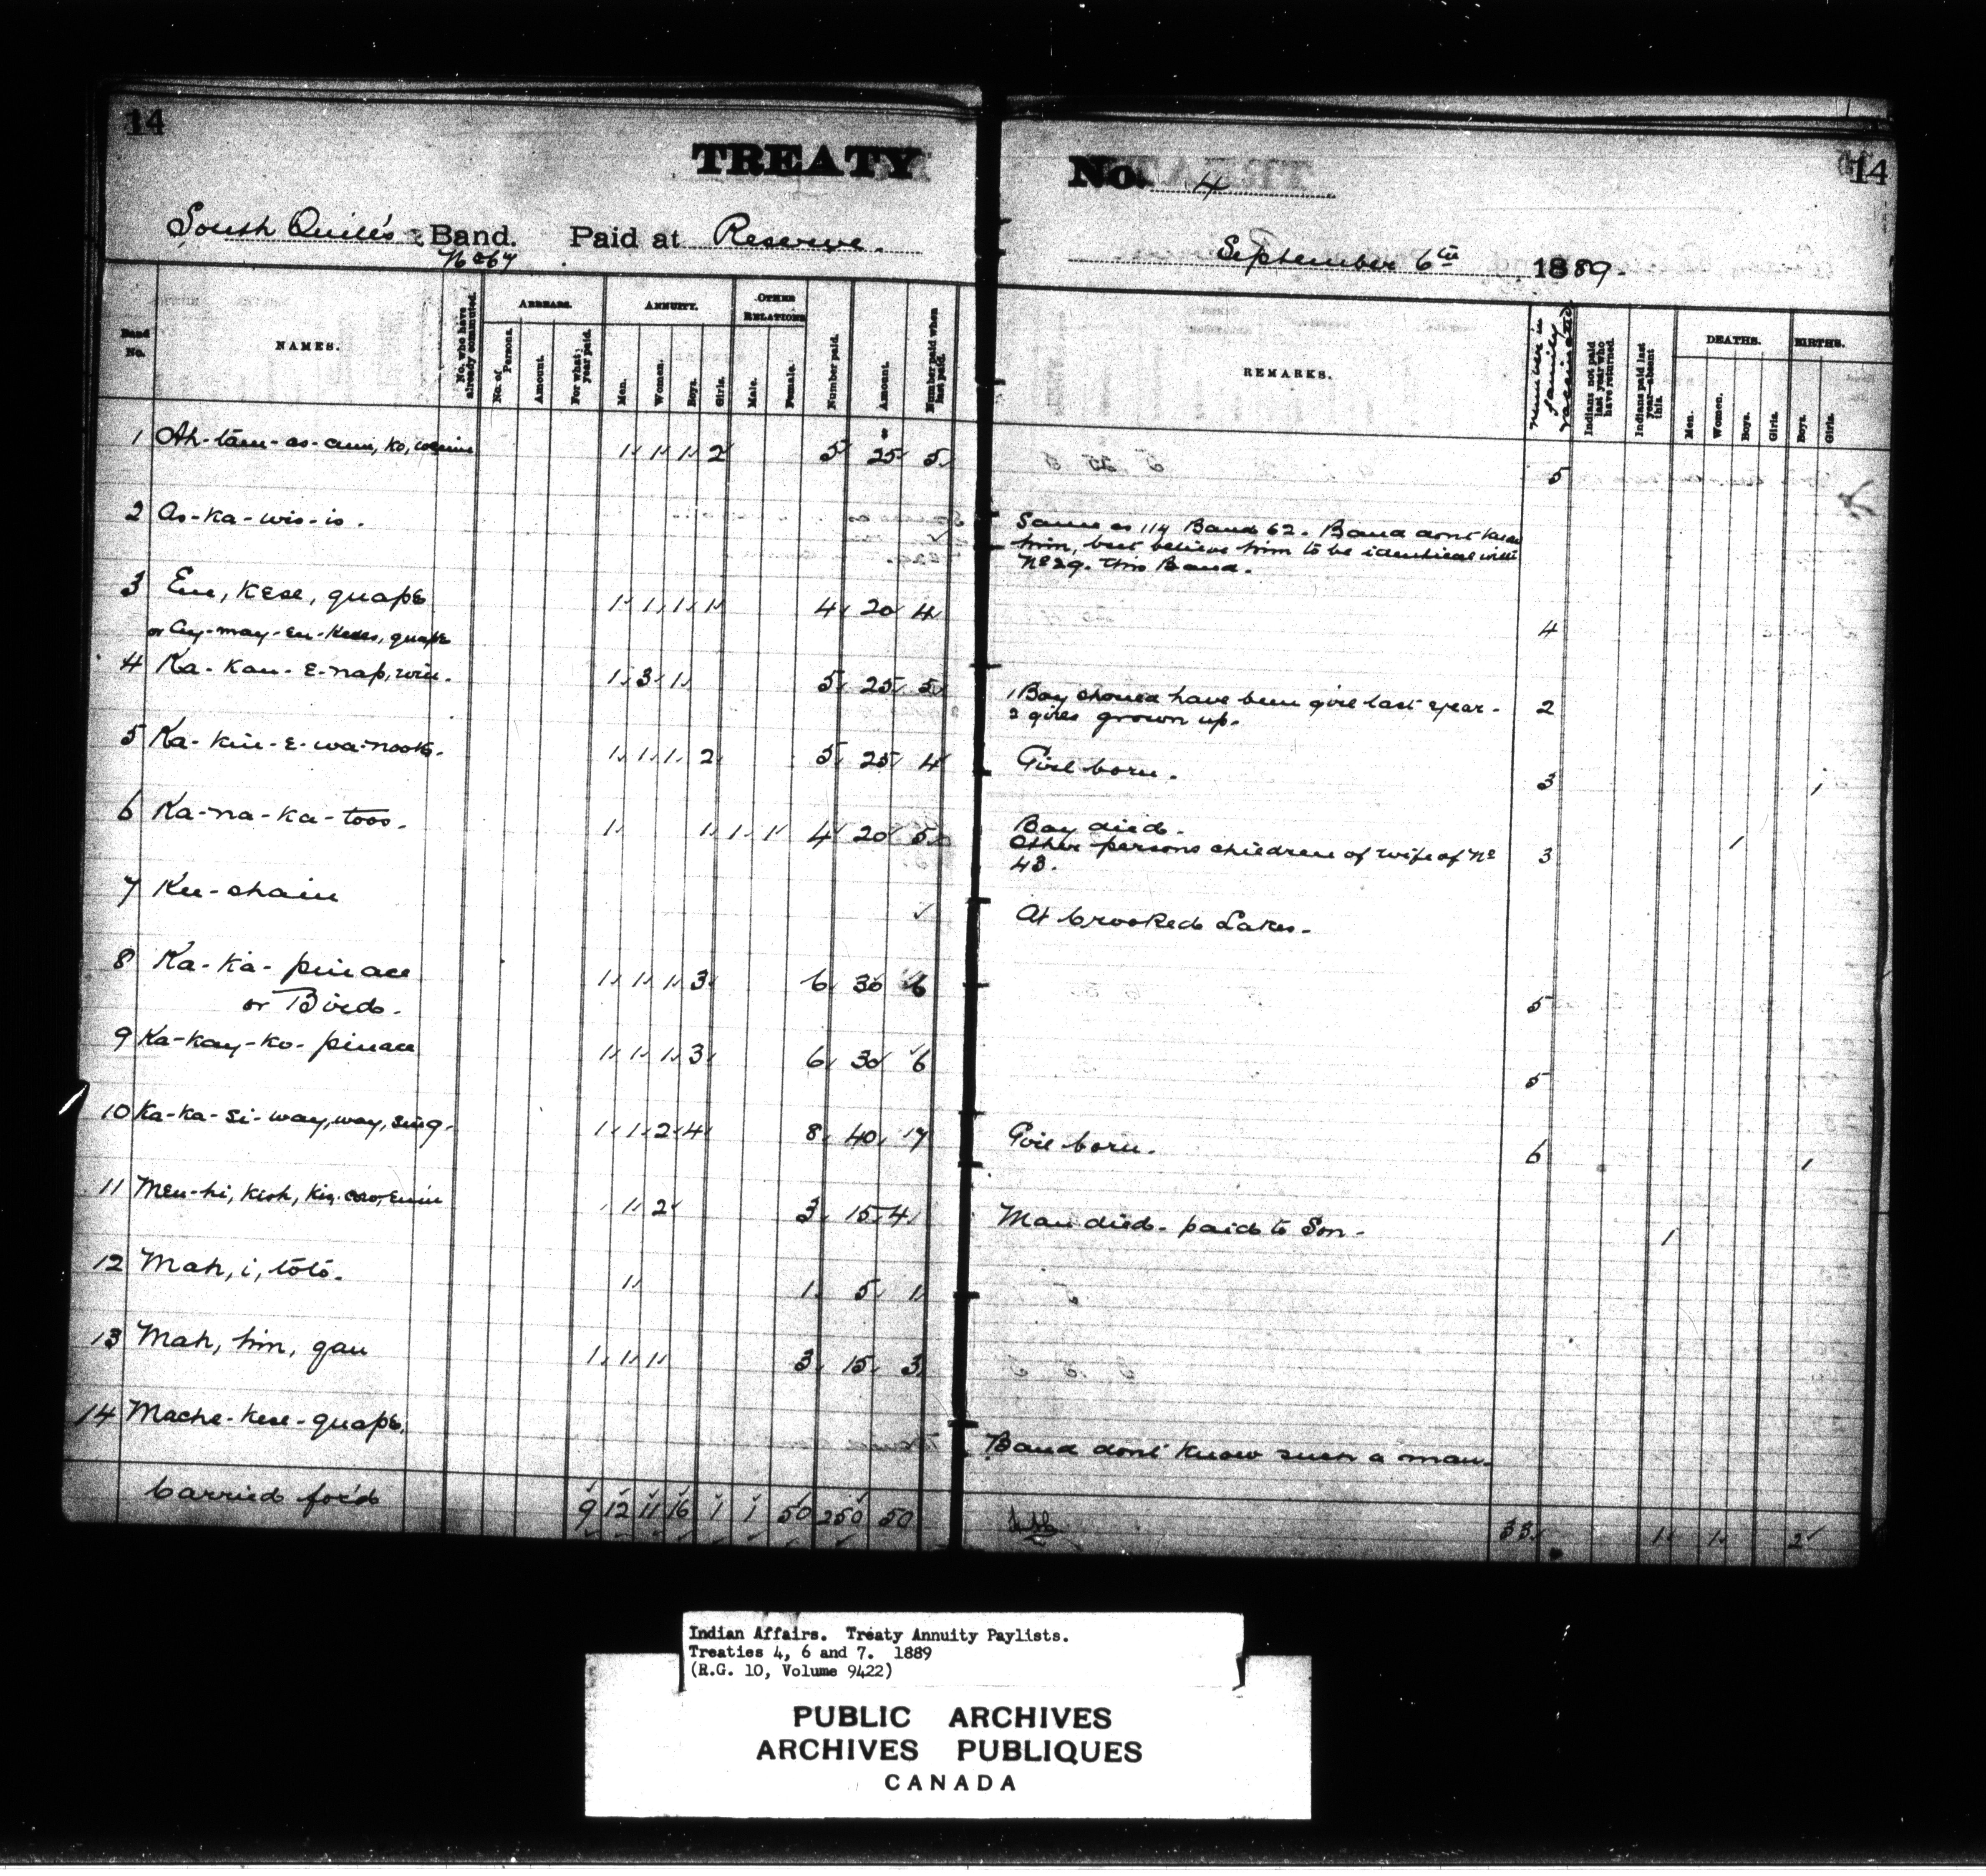 14
TREATY No. 4
14
South Quill's Band. Paid at Reserve.
No 67
September 6th 1889.
Band No.
NAMES.
No. who have already commuted.
ARREARS.
No. of Persons.
Amount.
For what year paid.
ANNUITY.
Men.
Women.
Boys.
Girls.
OTHER RELATIONS
Male.
Female.
Number paid.
Amount.
Number paid when last paid.
REMARKS.
Number in family vaccinated
Indians not paid last year who have returned.
Indians paid last year—absent this.
DEATHS.
Men.
Women.
Boys.
Girls.
BIRTHS.
Boys.
Girls.
1 Ah-tām-as-aum, ko, 1 1 1 2 5 25 5 5
2 As-ka-wis-is. Same as 114 Band 62. Band dont know
him, but believe him to be identical with
No 29. this Band.
3 Eu, kese, quape 1 1 1 1 4 20 4 4
or Ay-may-eu-kees, quape
4 Ka-kau-e-nap, win. 1 3 1 5 25 5 1 Boy should have been girl last year- 2
2 girls grown up.
5 Ka-kin-e-wa-nook. 1 1 1 2 5 25 4 Girl born. 3 1
6 Ka-na-ka-toos. 1 1 1 1 4 20 5 Boy died. 3 1
Other persons children of wife of No
43.
7 Ku-chain At Crooked Lakes-
8 Ka-ka-pinace 1 1 1 3 6 30 6 5
or Birds.
9 Ka-kay-ko-pinace 1 1 1 3 6 30 6 5
10 Ka-ka-si-way, way, sing. 1 1 2 4 8 40 7 Girl born. 6 1
11 Men-hi, kish, 1 2 3 15 4 Man died- paid to Son- 1
12 Mah, i, tōtō. 1 1 5 1
13 Mah, him, gau 1 1 1 3 15 3
14 Mache-kese-quape. Band dont know such a man.
Carried for'd 9 12 11 16 1 1 50 250 50 33 1 1 2
Indian Affairs. Treaty Annuity Paylists.
Treaties 4, 6 and 7. 1889
(R.G. 10, Volume 9422)
PUBLIC ARCHIVES
ARCHIVES PUBLIQUES
CANADA